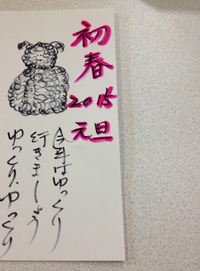 初春
2015
元旦
今年はゆっくり
行きましょう
ゆっくり、ゆっくり